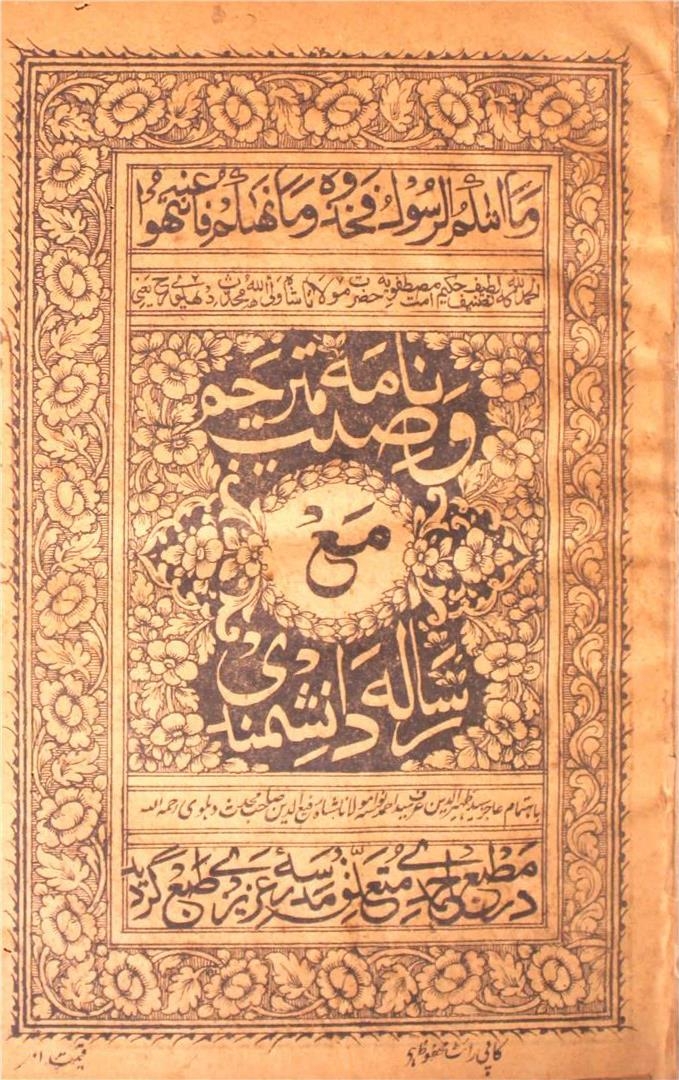 وَمَا اٰتٰىكُمُ الرَّسُوْلُ فَخُذُوْهُ وَمَا نَهٰىكُمْ عَنْهُ فَانْتَهُوْا
الحمد للہ کہ تصنیف لطیف حکیم امت مصطفویہ حضرت مولانا شاہ ولی اللہ محدث دھلوی رح یعنی
وصیت نامہ مترجم
مَعْ
رسالہ دانشمندی
باہتمام عاجز سید ظہیر الدین عرف سید احمد نواسہ مولانا شاہ رفیع الدین صاحب محدث دہلوی رحمہ اللہ
در مطبع احمدی متعلق مدرسہ عزیزی طبع گردید
کاپی رائٹ محفوظ ہے
قیمت ۱ر